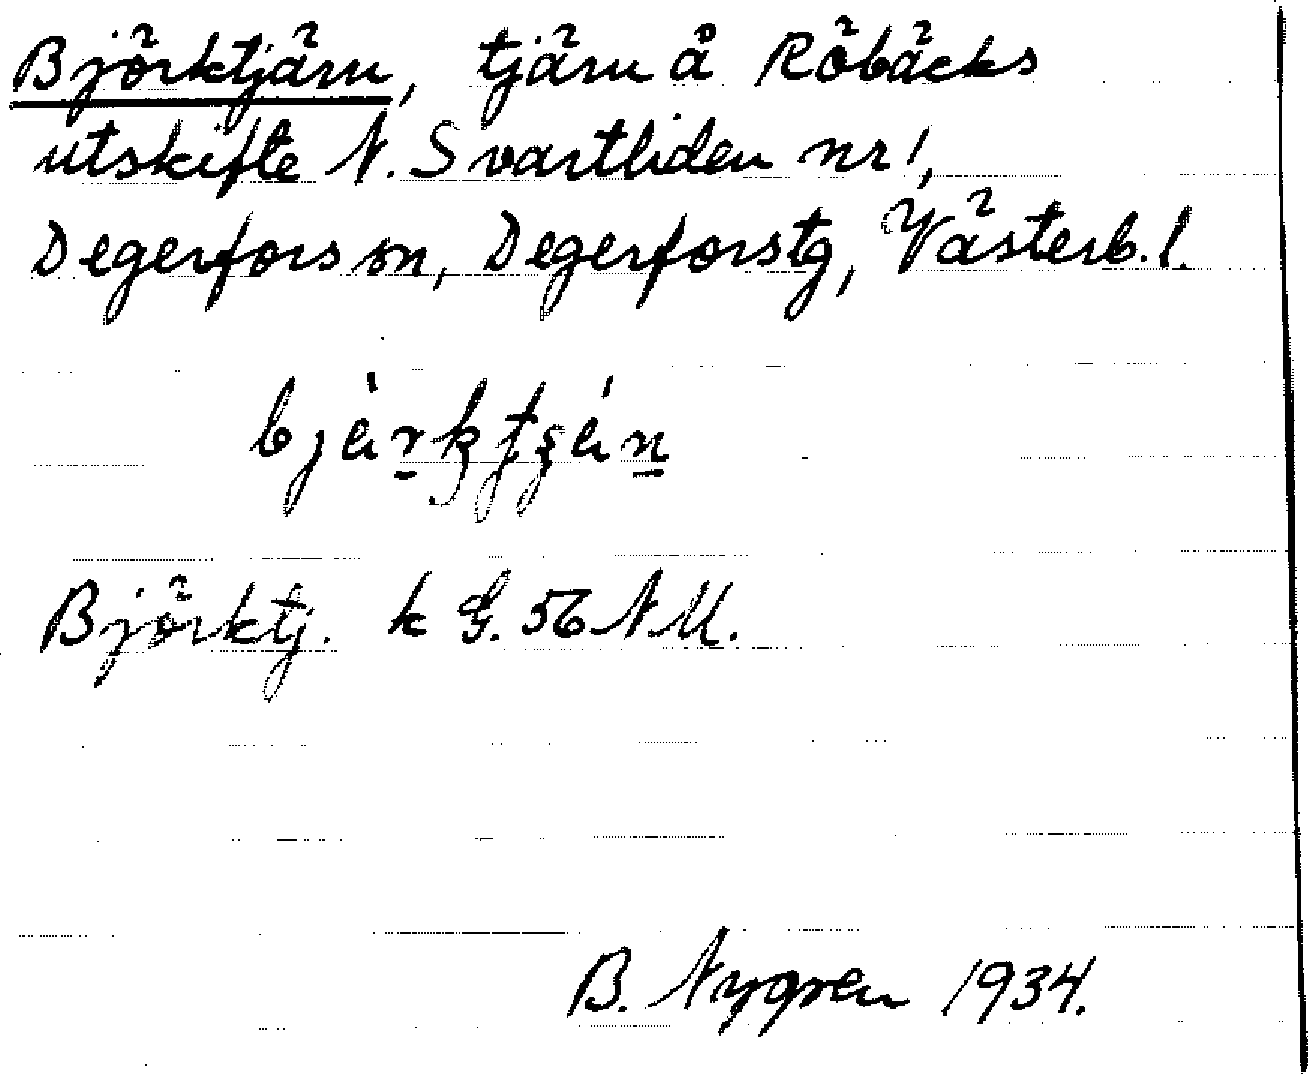 Björktjärn, tjärn å Röbäcks
utskifte N. Svartliden nr 1,
Degerfors sn, Degerforstg, Västerb. l.
Björktj. k G. 56 N M.
B. Nygren 1934.